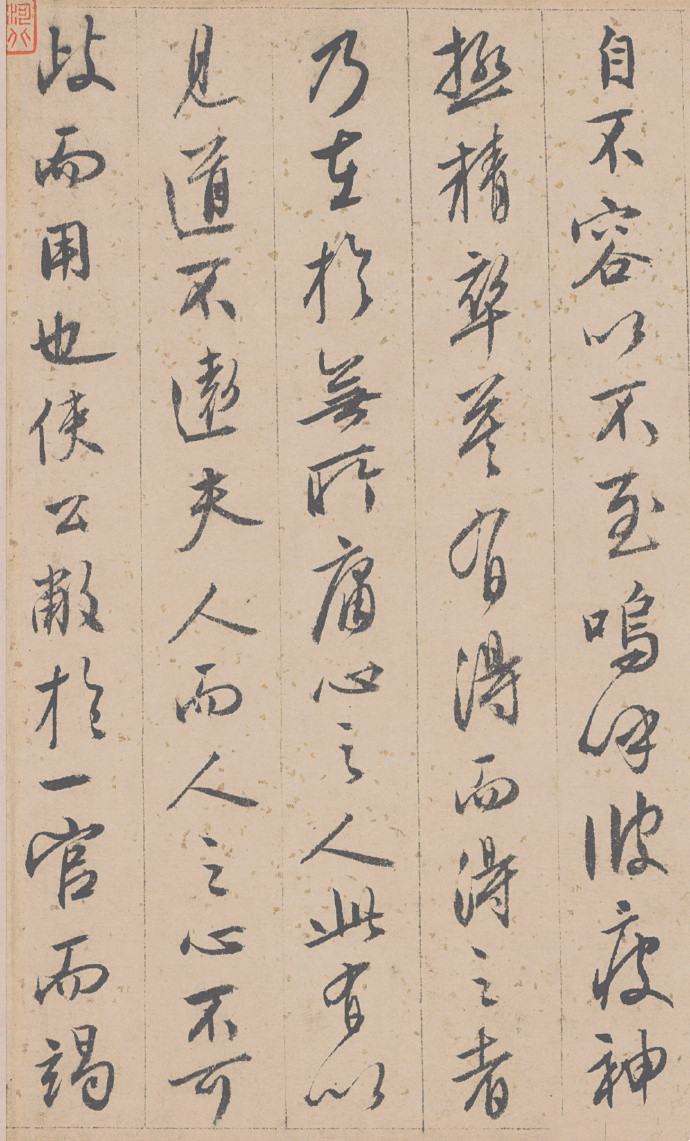 自不容以不至嗚呼彼疲神
極精卒莫有得而得之者
乃在於無所庸心之人此有以
見道不遠夫人而人之心不可
歧而用也使公敝於一官而竭